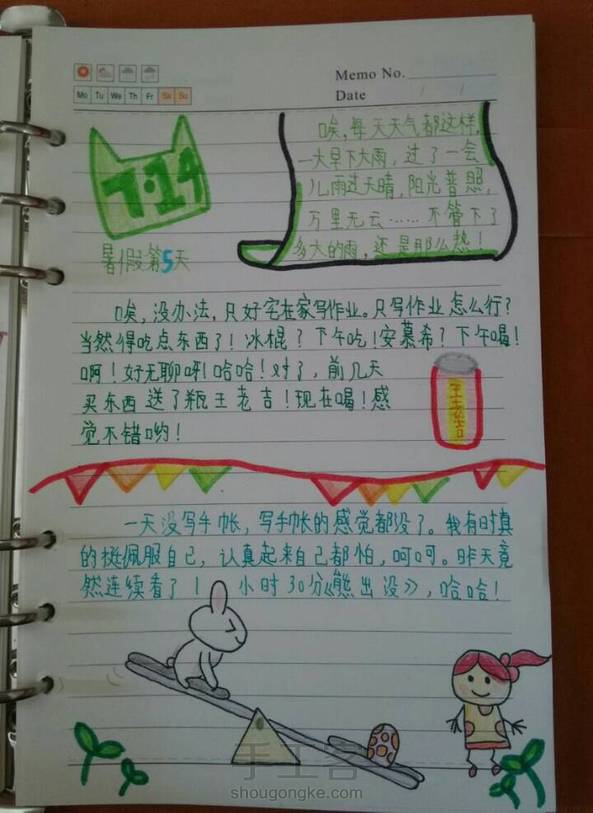 Memo No.
Mo Tu We Th Fr Sa Su
Date / /
7·14
暑假第5天
唉,每天天气都这样,
一大早下大雨,过了一会
儿雨过天晴,阳光普照,
万里无云……不管下了
多大的雨,还是那么热!
唉,没办法,只好宅在家写作业。只写作业怎么行?
当然得吃点东西了!冰棍?下午吃!安慕希?下午喝!
啊!好无聊呀!哈哈!对了,前几天
买东西送了瓶王老吉!现在喝!感
觉不错哟!
王老吉
一天没写手帐,写手帐的感觉都没了。我有时真
的挺佩服自己,认真起来自己都怕,呵呵。昨天竟
然连续看了1小时30分《熊出没》,哈哈!
手工客
shougongke.com